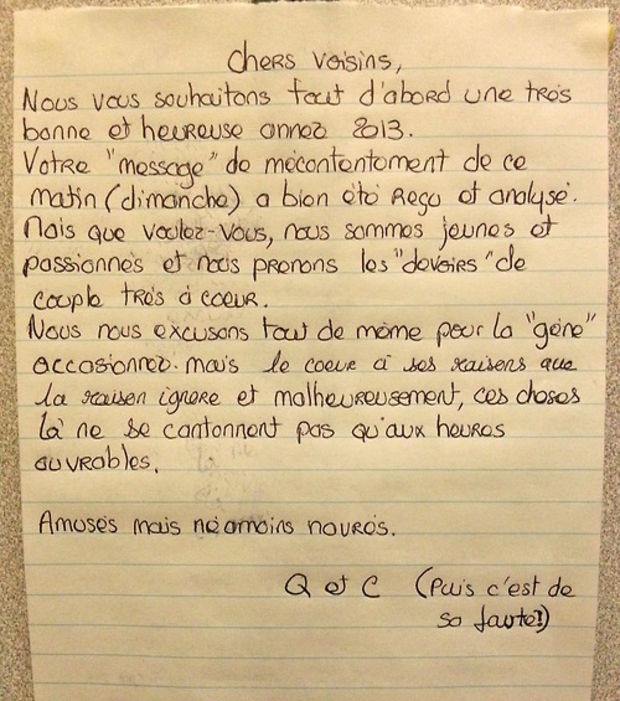 Chers voisins,
Nous vous souhaitons tout d'abord une très
bonne et heureuse année 2013.
Votre "message" de mécontentement de ce
matin (dimanche) a bien été reçu et analysé.
Mais que voulez-vous, nous sommes jeunes et
passionnés et nous prenons les "devoirs" de
couple très à coeur.
Nous nous excusons tout de même pour la "gène"
occasionnée. mais le coeur à ses raisons que
la raison ignore et malheureusement, ces choses
là ne se cantonnent pas qu'aux heures
ouvrables.
Amusés mais néamoins navrés.
Q et C (Puis c'est de
sa faute!)